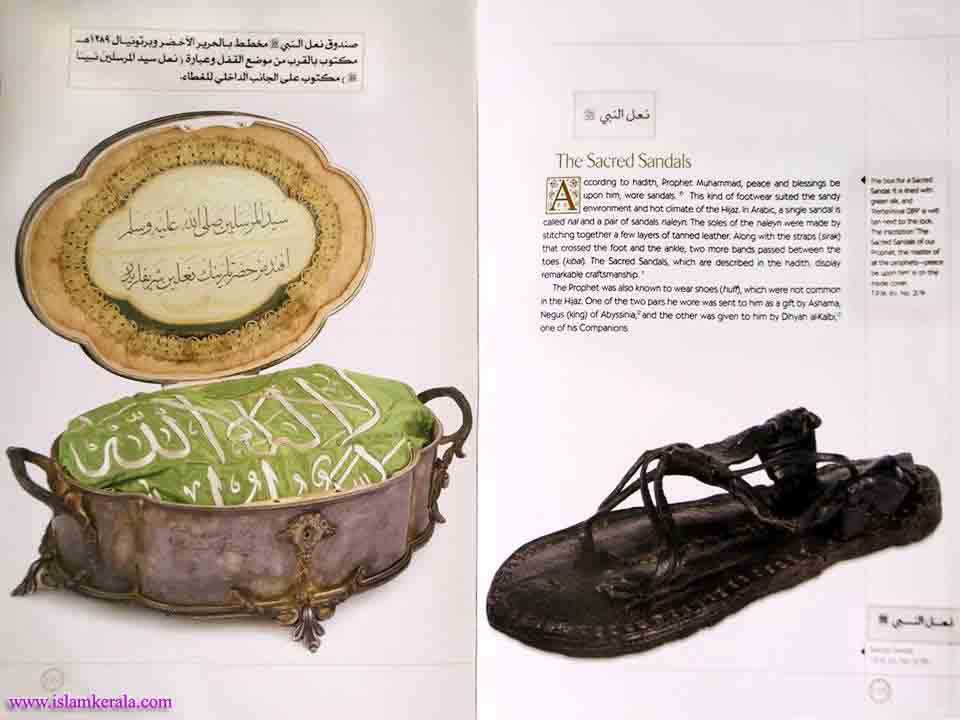 صندوق نعل النبي ﷺ مخطط بالحرير الأخضر وبرتونيال ١٢٨٩هـ
مكتوب بالقرب من موضع القفل وعبارة ( نعل سيد المرسلين نبينا
ﷺ ) مكتوب على الجانب الداخلي للغطاء.
سيد المرسلين صلى الله عليه وسلم
افندمز حضرتلرينك نعلين شريفلريدر
لا إله إلا الله
نعل النبي ﷺ
The Sacred Sandals
According to hadith, Prophet Muhammad, peace and blessings be
upon him, wore sandals. This kind of footwear suited the sandy
environment and hot climate of the Hijaz. In Arabic, a single sandal is
called nal and a pair of sandals naleyn. The soles of the naleyn were made by
stitching together a few layers of tanned leather. Along with the straps (sirak)
that crossed the foot and the ankle, two more bands passed between the
toes (kibal). The Sacred Sandals, which are described in the hadith, display
remarkable craftsmanship.
The Prophet was also known to wear shoes (huff), which were not common
in the Hijaz. One of the two pairs he wore was sent to him as a gift by Ashama,
Negus (king) of Abyssinia, and the other was given to him by Dihyah al-Kalbi,
one of his Companions.
The box for a Sacred
Sandal. It is lined with
green silk, and
1289" is
next to the lock.
The inscription "The
Sacred Sandals of our
Prophet, the master of
all the prophets—peace
be upon him" is on the
inside cover.
نعل النبي ﷺ
Sacred Sandal
www.islamkerala.com